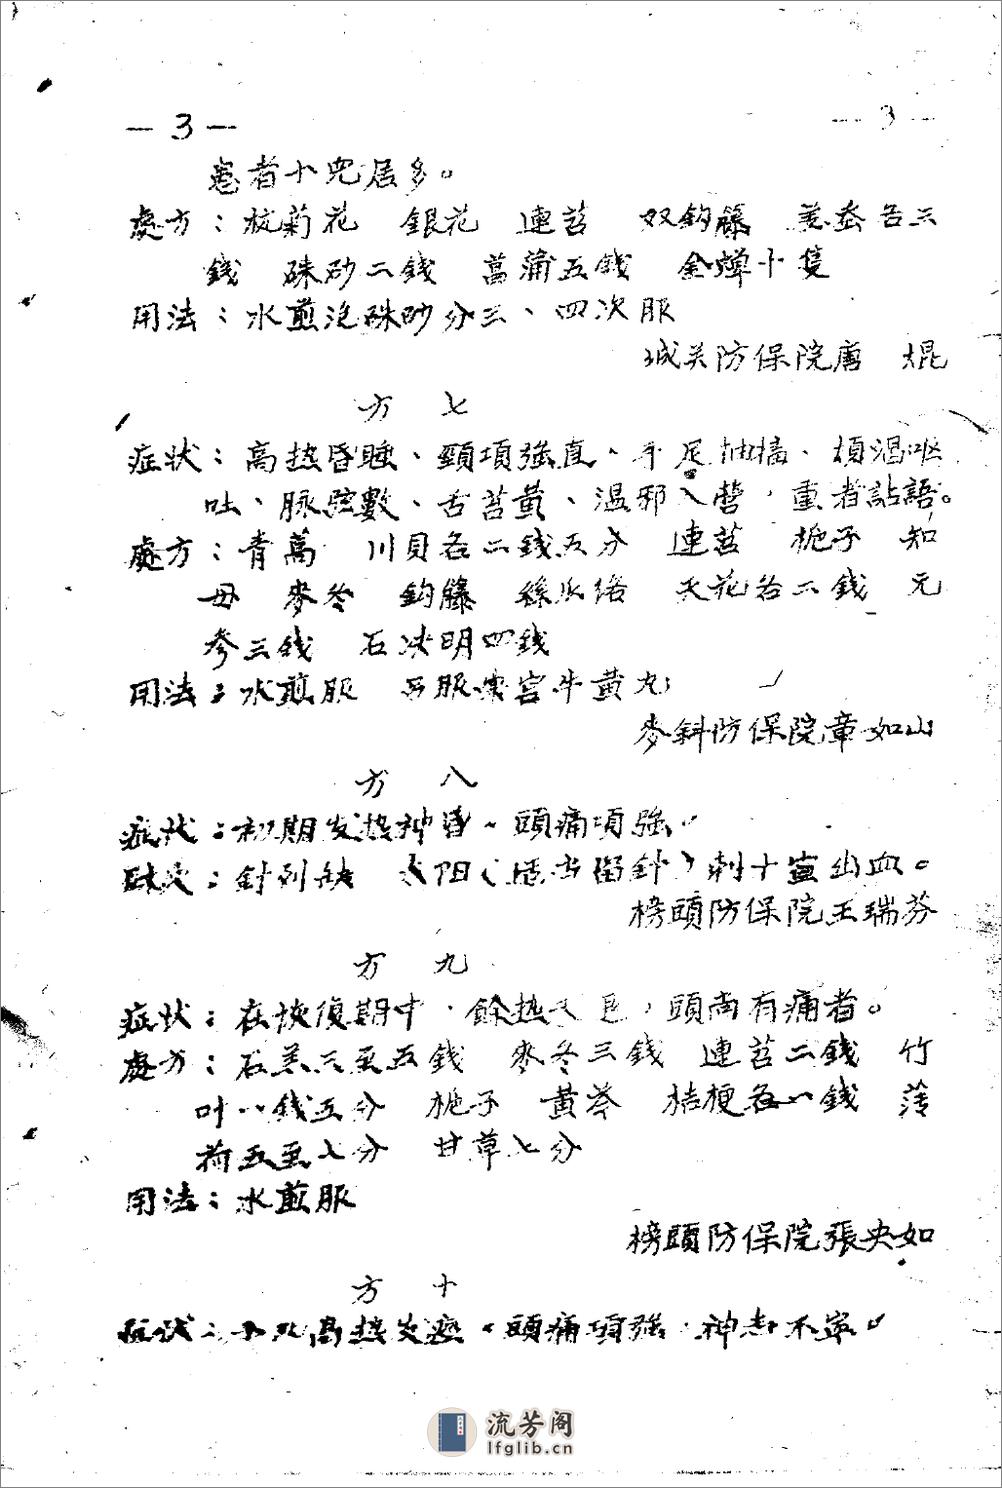 —3—
患者小兜居多。
處方：杭菊花 銀花 連苕 双鈎籐 姜蚕各三
錢 硃砂二錢 菖蒲五錢 金蟬十隻
用法：水煎泡硃砂分三、四次服
城关防保院唐 焜
方 七
症状：高热昏睡、頸項強直、手足抽搐、煩渴嘔
吐、脉弦數、舌苔黄、温邪入营，重者詀語。
處方：青蒿 川貝各二錢五分 連苕 梔子 知
母 麥冬 鈎籐 絲瓜络 天花各二錢 元
參三錢 石决明四錢
用法：水煎服 另服安宫牛黄丸
麥斜防保院章如山
方 八
症状：初期发热神昏、頭痛項強。
針列缺 太阳（ 留針）刺十宣出血。
榜頭防保院王瑞芬
方 九
症状：在恢復期中，餘热 ，頭尚有痛者。
處方：石羔三至五錢 麥冬三錢 連苕二錢 竹
叶一錢五分 梔子 黄芩 桔梗各一錢 薄
荷五至七分 甘草七分
用法：水煎服
榜頭防保院張央如
方 十
症状： 高热 頭痛項強，神志不寧。
流芳阁
lfglib.cn